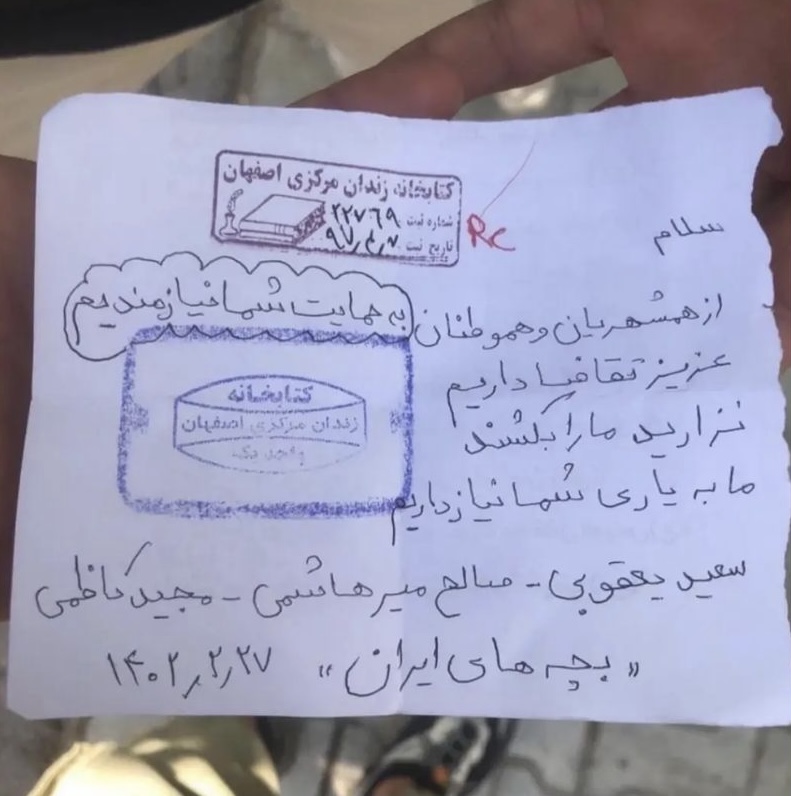 کتابخانه زندان مرکزی اصفهان
شماره ثبت ۲۲۷۶۹
تاریخ ثبت ۹۷٫۴٫۷
RC
سلام
به حمایت شما نیازمندیم
از همشهریان و هموطنان
عزیز تقاضا داریم
نزارید ما را بکشند
ما به یاری شما نیاز داریم
کتابخانه
زندان مرکزی اصفهان
واحد یک
سعید یعقوبی - صالح میرهاشمی - مجید کاظمی
"بچه های ایران" ۱۴۰۲٫۲٫۲۷